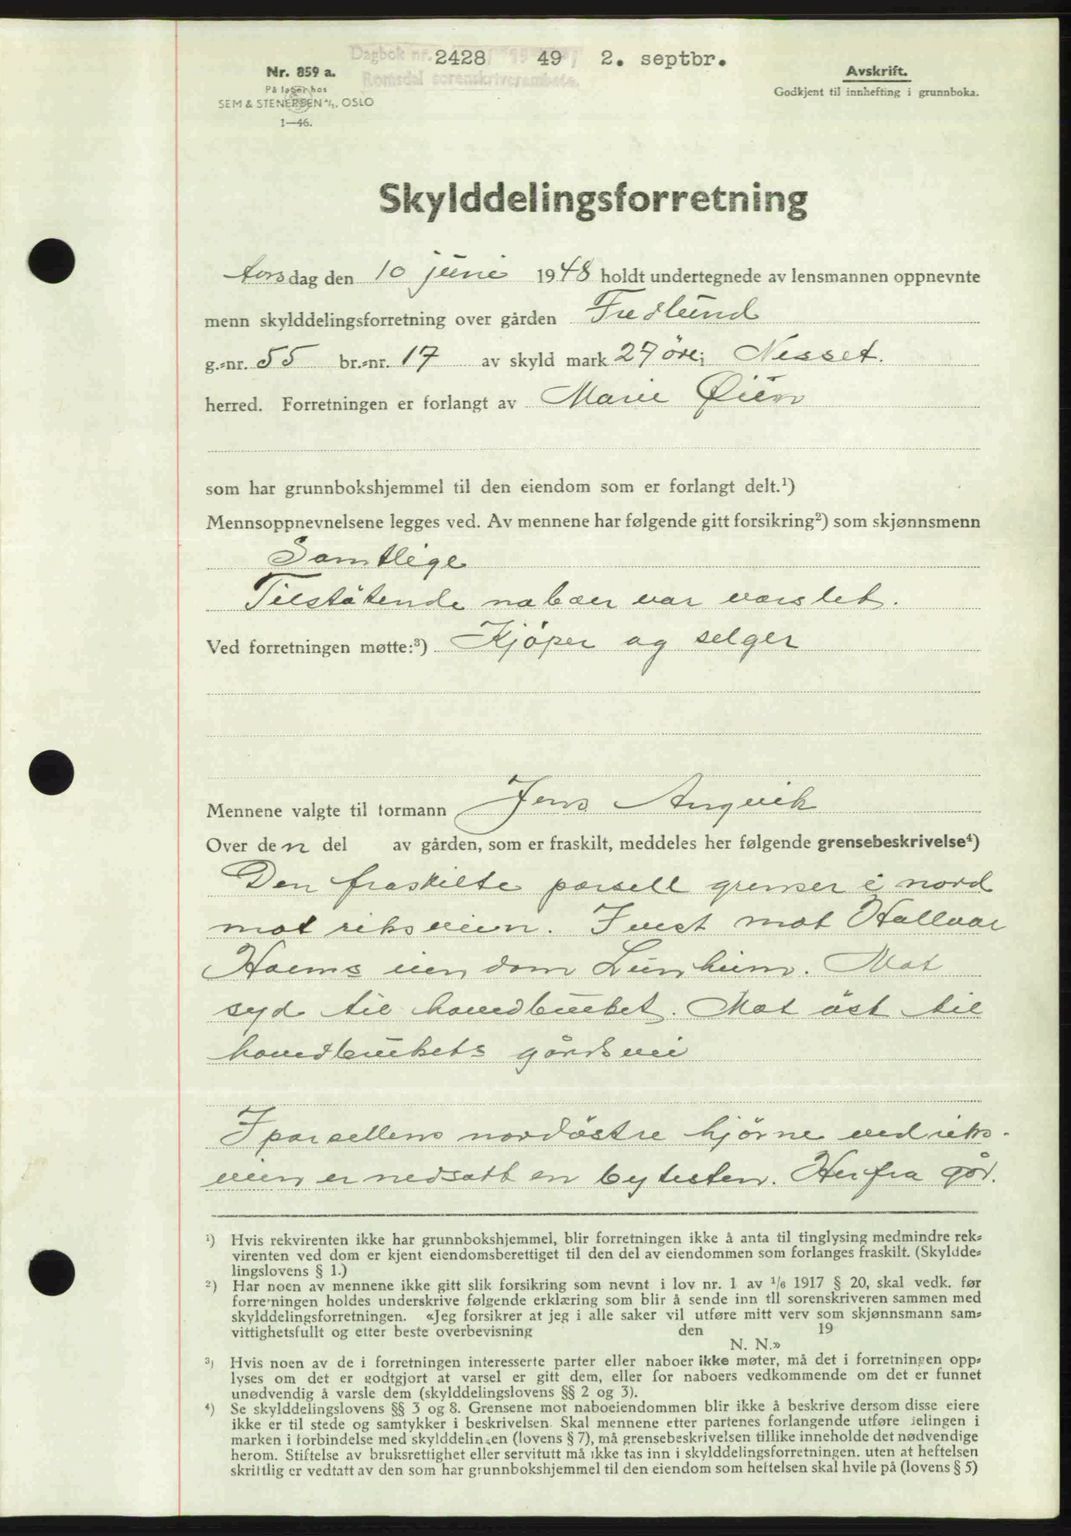 Dagbok nr. 2428 19 49 2. septbr.
Romsdal sorenskriverembete.
Nr. 859 a.
På lager hos
SEM & STENERSEN A/S, OSLO
1—46.
Avskrift.
Godkjent til innhefting i grunnboka.
Skylddelingsforretning
torsdag den 10 juni 1948 holdt undertegnede av lensmannen oppnevnte
menn skylddelingsforretning over gården Fredlund
g.-nr. 55 br.-nr. 17 av skyld mark 27 öre i Nesset.
herred. Forretningen er forlangt av Marie Øien
som har grunnbokshjemmel til den eiendom som er forlangt delt.¹)
Mennsoppnevnelsene legges ved. Av mennene har følgende gitt forsikring²) som skjønnsmenn
Samtlige
Tilstötende naboer var varslet.
Ved forretningen møtte:³) Kjöper og selger
Mennene valgte til formann Jens Angvik
Over den del av gården, som er fraskilt, meddeles her følgende grensebeskrivelse⁴)
Den fraskilte parsell grenser i nord
mot riksveien. I vest mot Hallvar
Hoems eiendom Lunheim. Mot
syd til hovedbruket. Mot öst til
hovedbrukets gårdsvei
I parsellens nordöstre hjörne ved riks-
veien er nedsatt en bytesten. Herfra går.
¹) Hvis rekvirenten ikke har grunnbokshjemmel, blir forretningen ikke å anta til tinglysing medmindre rek-
virenten ved dom er kjent eiendomsberettiget til den del av eiendommen som forlanges fraskilt. (Skyldde-
lingslovens § 1.)
²) Har noen av mennene ikke gitt slik forsikring som nevnt i lov nr. 1 av ¹/₆ 1917 § 20, skal vedk. før
forretningen holdes underskrive følgende erklæring som blir å sende inn til sorenskriveren sammen med
skylddelingsforretningen. «Jeg forsikrer at jeg i alle saker vil utføre mitt verv som skjønnsmann sam-
vittighetsfullt og etter beste overbevisning den 19
N. N.»
³) Hvis noen av de i forretningen interesserte parter eller naboer ikke møter, må det i forretningen opp-
lyses om det er godtgjort at varsel er gitt dem, eller for naboers vedkommende om det er funnet
unødvendig å varsle dem (skylddelingslovens §§ 2 og 3).
⁴) Se skylddelingslovens §§ 3 og 8. Grensene mot naboeiendommen blir ikke å beskrive dersom disse eiere
ikke er til stede og samtykker i beskrivelsen. Skal mennene etter partenes forlangende utføre delingen i
marken i forbindelse med skylddelingen (lovens § 7), må grensebeskrivelsen tillike inneholde det nødvendige
herom. Stiftelse av bruksrettighet eller servitutt må ikke tas inn i skylddelingsforretningen, uten at heftelsen
skriftlig er vedtatt av den som har grunnbokshjemmel til den eiendom som heftelsen skal hvile på (lovens § 5)